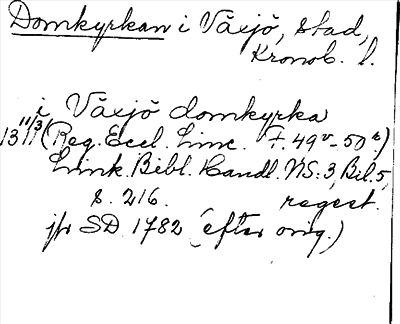 Domkyrkan i Växjö, stad,
Kronob. l.
i Växjö domkyrka
13 11/3 11 (Reg. Eccl. Linc. F. 49v-50r.)
Link. Bibl. Handl. NS: 3, Bil. 5,
s. 216. regest.
jfr SD 1782 (efter orig.)